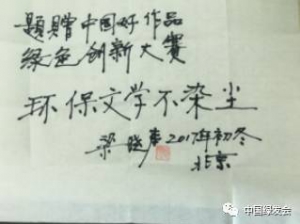 题贈中国好作品
绿色创新大赛
环保文学不染尘
梁晓声2017年初冬
北京
中国绿发会